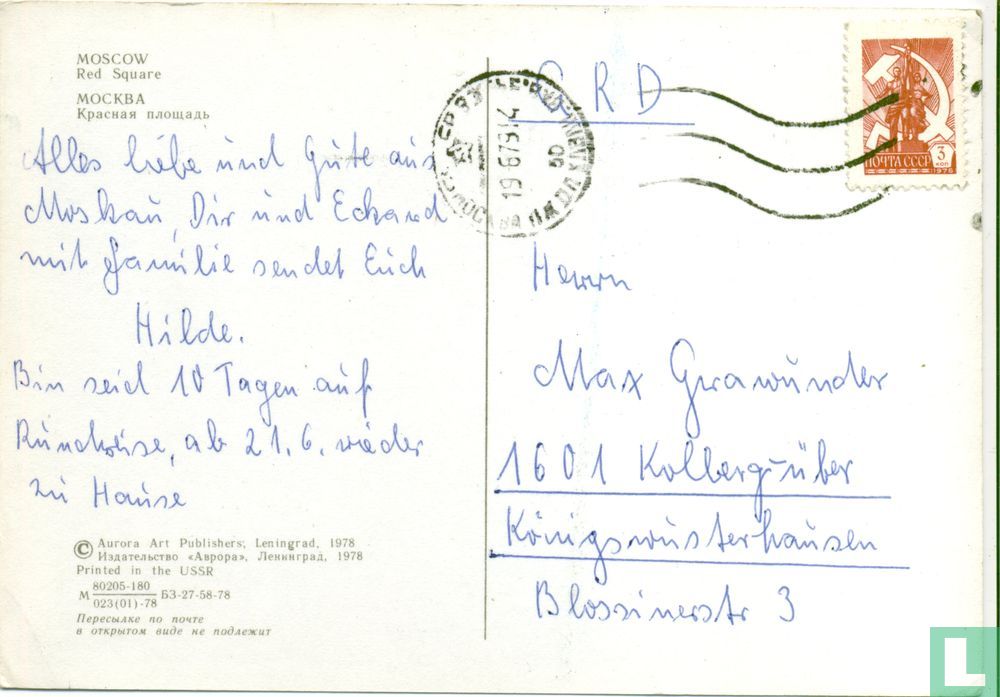 MOSCOW
Red Square
МОСКВА
Красная площадь
Alles liebe und Gute aus
Moskau, Dir und Eckard
mit Familie sendet Euch
Hilde.
Bin seid 10 Tagen auf
Rundreise, ab 21.6. wieder
zu Hause
© Aurora Art Publishers, Leningrad, 1978
Издательство «Аврора», Ленинград, 1978
Printed in the USSR
М 80205-180
023(01)-78 БЗ-27-58-78
Пересылке по почте
в открытом виде не подлежит
МОСКВА
19 6 79 14
ПОЧТА СССР
3
коп
1976
Herrn
Max Grawunder
1601 Kolberg-über
Königswusterhausen
Blossinerstr 3
L